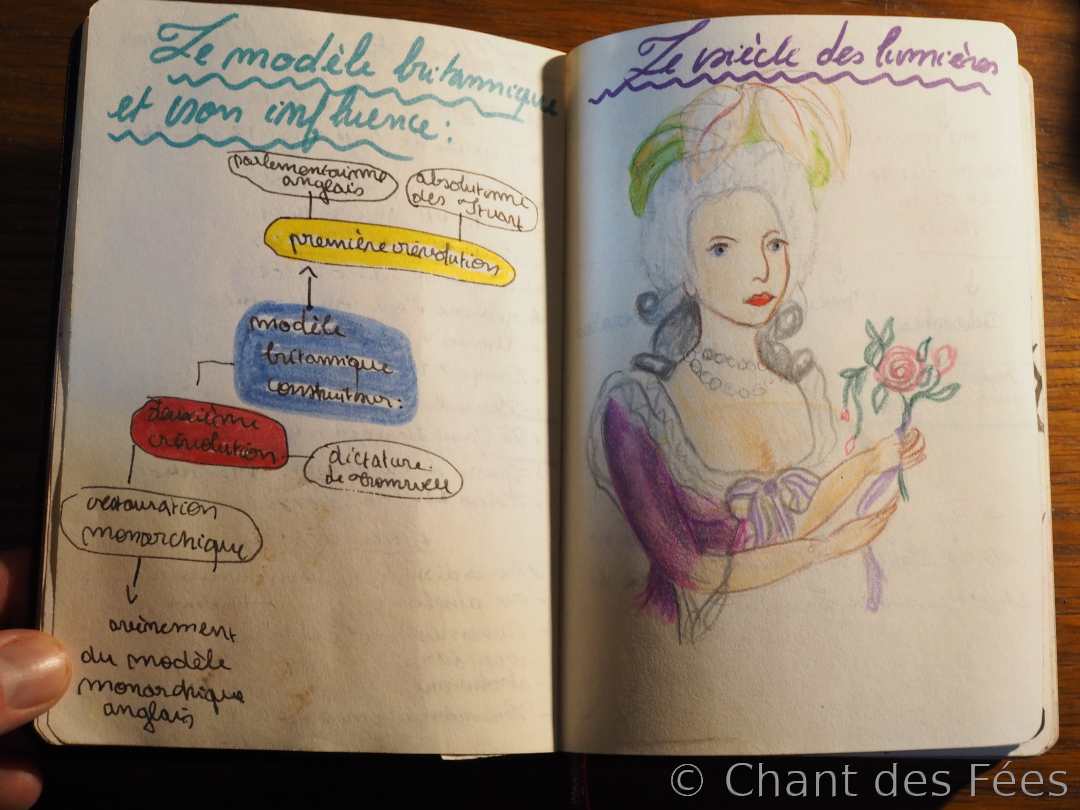 Le modèle britannique
et son influence :
parlementarisme
anglais
absolutisme
des Stuart
première révolution
modèle
britannique
construit sur :
deuxième
révolution
dictature
de Cromwell
restauration
monarchique
avènement
du modèle
monarchique
anglais
Le siècle des lumières
© Chant des Fées